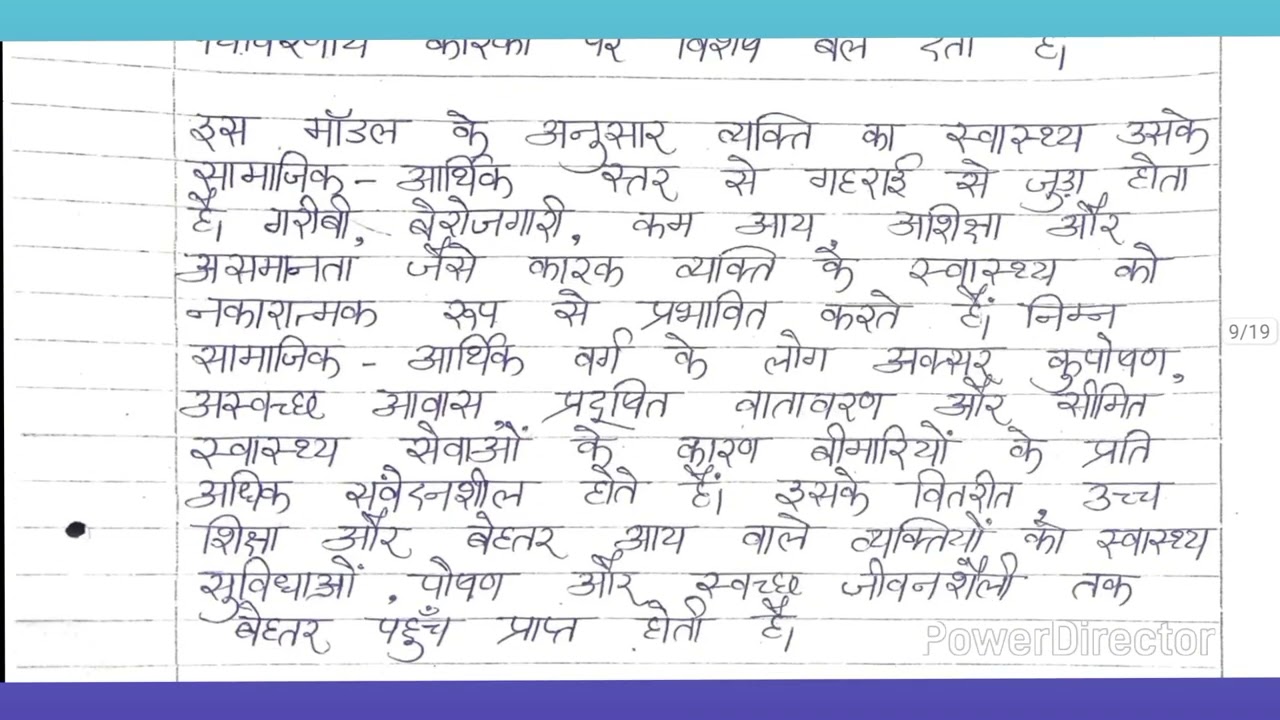 कारकों पर विशेष बल देता है।
इस मॉडल के अनुसार व्यक्ति का स्वास्थ्य उसके
सामाजिक - आर्थिक स्तर से गहराई से जुड़ा होता
है। गरीबी, बेरोजगारी, कम आय अशिक्षा और
असमानता जैसे कारक व्यक्ति के स्वास्थ्य को
नकारात्मक रूप से प्रभावित करते हैं। निम्न
सामाजिक - आर्थिक वर्ग के लोग अक्सर कुपोषण,
अस्वच्छ आवास प्रदूषित वातावरण और सीमित
स्वास्थ्य सेवाओं के कारण बीमारियों के प्रति
अधिक संवेदनशील होते हैं। इसके वितरीत, उच्च
शिक्षा और बेहतर आय वाले व्यक्तियों को स्वास्थ्य
सुविधाओं, पोषण और स्वच्छ जीवनशैली तक
बेहतर पहुँच प्राप्त होती है।
9/19
PowerDirector